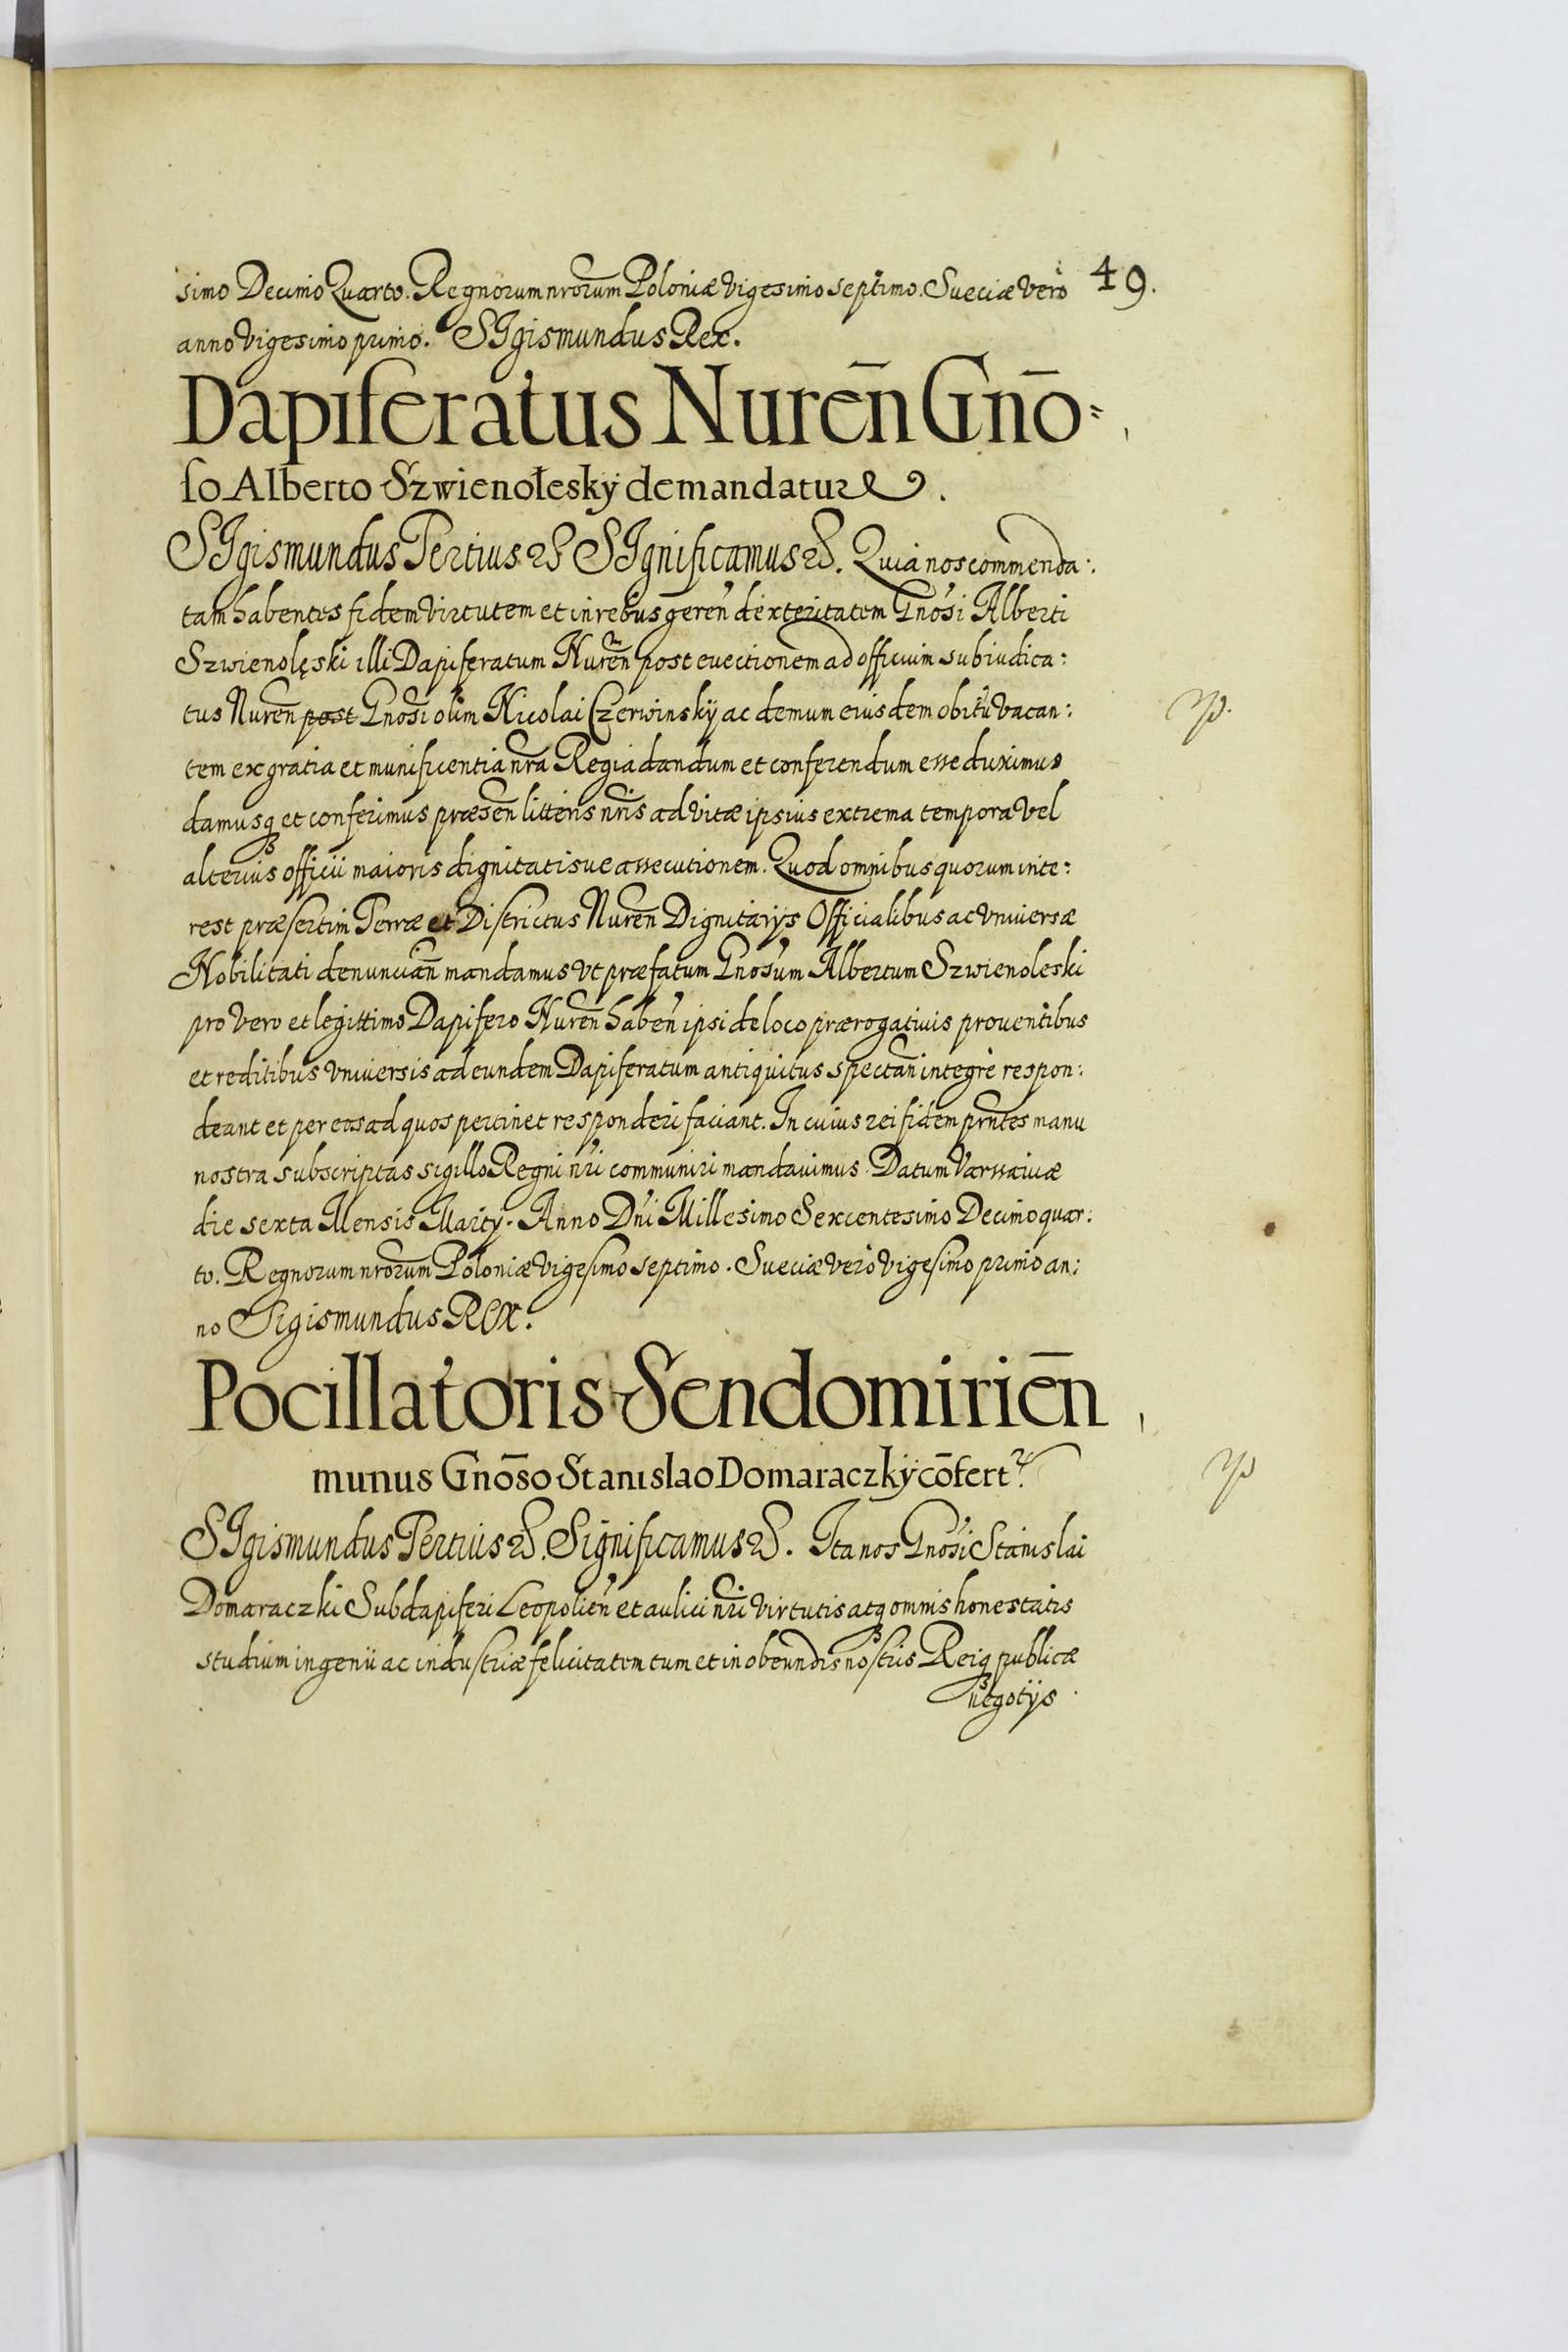 49.
simo Decimo Quarto. Regnorum nrorum Poloniæ Vigesimo septimo. Sueciæ Vero
anno Vigesimo primo. SIgismundus Rex.
Dapiferatus Nureñ Gnō=
so Alberto Szwienołeskÿ demandatur.
SIgismundus Tertius &. SIgnificamus &. Quia nos commenda:
tam habentes fidem virtutem et in rebus geren dexteritatem Gnosi Alberti
Szwienolęski illi Dapiferatum Nureñ post euectionem ad officium subiudica:
tus Nureñ post Gnosi olim Nicolai Czerwinskÿ ac demum eiusdem obitu vacan:
tem ex gratia et munificentia nra Regia dandum et conferendum esse duximus
damusq et conferimus præseñ litteris nris ad vitæ ipsius extrema tempora vel
alterius officii maioris dignitatisue assecutionem. Quod omnibus quorum inte:
rest præsertim Terræ et Districtus Nureñ Dignitarÿs Officialibus ac vniuersæ
Nobilitati denuncian mandamus vt præfatum Gnosum Albertum Szwienoleski
pro vero et legittimo Dapifero Nureñ haben ipsi de loco prærogatiuis prouentibus
et reditibus vniuersis ad eundem Dapiferatum antiquitus spectañ integre respon:
deant et per eos ad quos pertinet responderi faciant. In cuius rei fidem prntes manu
nostra subscriptas sigillo Regni nri communiri mandauimus. Datum Varssauiæ
die sexta Mensis Martÿ. Anno Dni Millesimo Sexcentesimo Decimo quar:
to. Regnorum nrorum Poloniæ vigesimo septimo. Sueciæ vero vigesimo primo an:
no Sigismundus Rex.
Pocillatoris Sendomirieñ
munus Gnōso Stanislao Domaraczkÿ cōfert.
SIgismundus Tertius &. Significamus &. Ita nos Gnosi Stanislai
Domaraczki Subdapiferi Leopolien et aulici nri virtutis atq omnis honestatis
studium ingenii ac industriæ felicitatem tum et in obeundis nostris Reiq publicæ
negotÿs